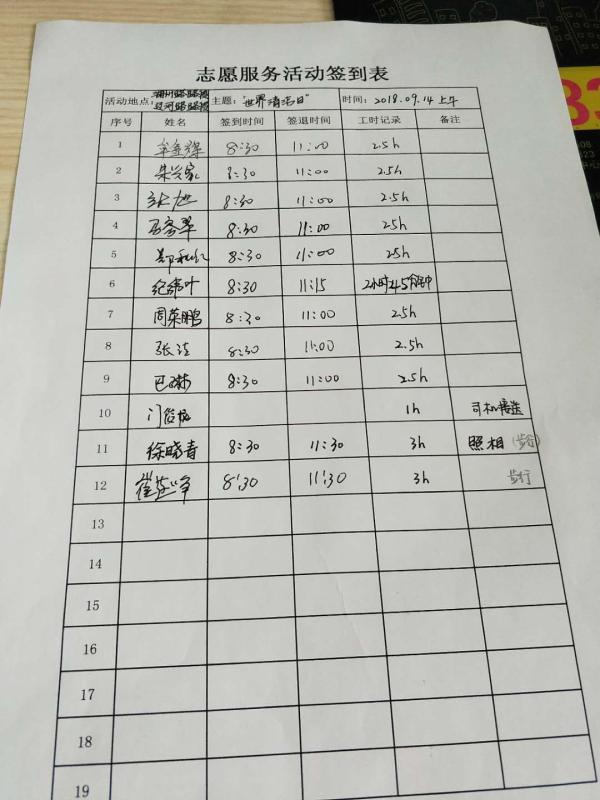 志愿服务活动签到表
活动地点: 主题: "世界清洁日" 时间: 2018.09.14 上午
序号 姓名 签到时间 签退时间 工时记录 备注
1 8:30 11:00 2.5h
2 朱兴家 8:30 11:00 2.5h
3 张旭 8:30 11:00 2.5h
4 8:30 11:00 2.5h
5 8:30 11:00 2.5h
6 纪纬叶 8:30 11:15 2小时45分钟
7 周荣鹏 8:30 11:00 2.5h
8 张洁 8:30 11:00 2.5h
9 巴琳 8:30 11:00 2.5h
10 1h 司机接送
11 徐晓青 8:30 11:30 3h 照相 (步行)
12 8:30 11:30 3h 步行
13
14
15
16
17
18
19